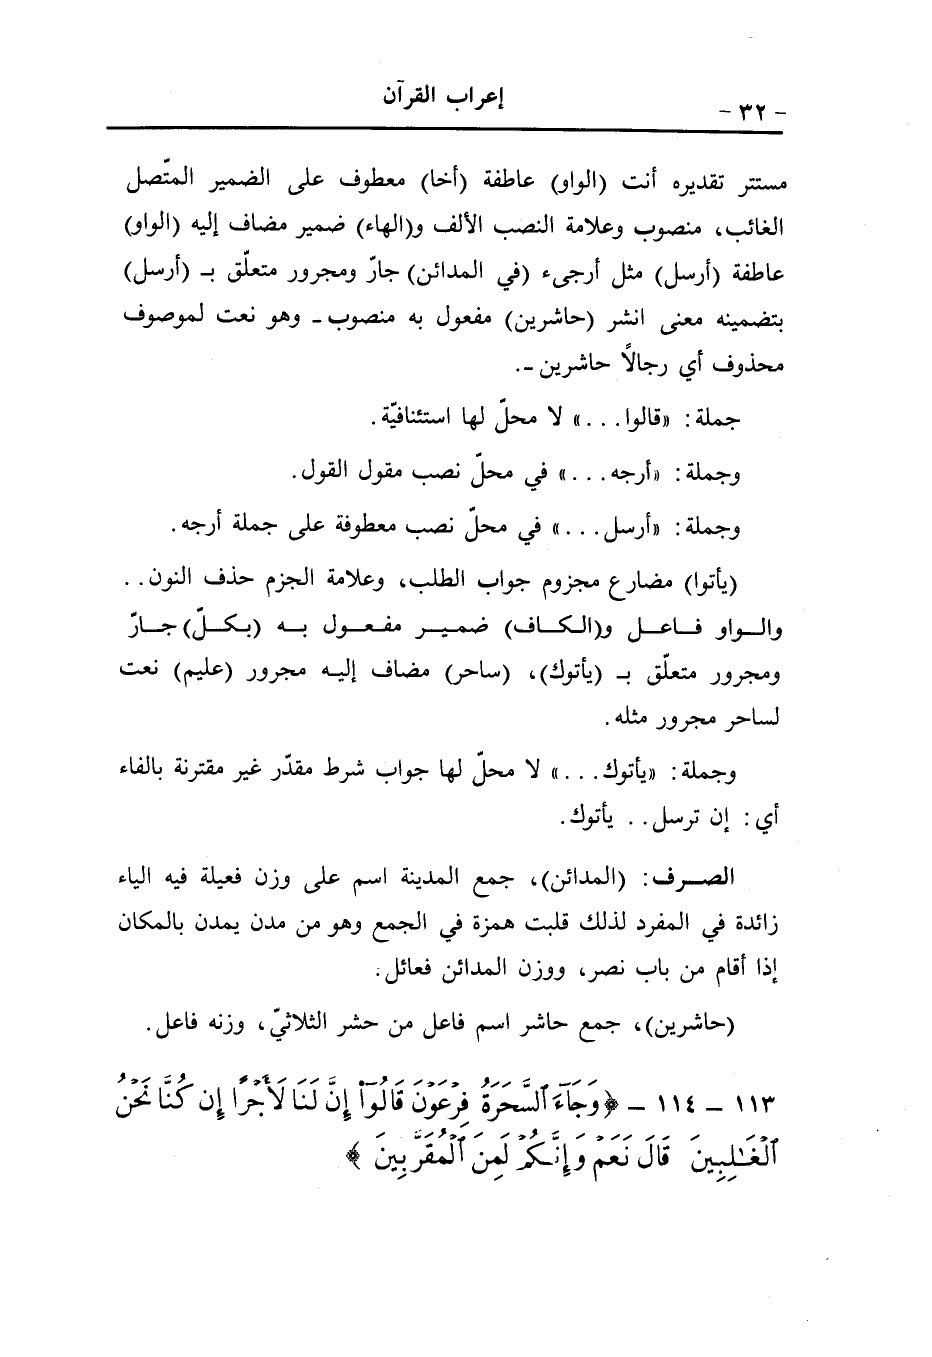 إعراب القرآن
- ٣٢ -
مستتر تقديره أنت (الواو) عاطفة (أخا) معطوف على الضمير المتّصل
الغائب، منصوب وعلامة النصب الألف و(الهاء) ضمير مضاف إليه (الواو)
عاطفة (أرسل) مثل أرجىء (في المدائن) جارّ ومجرور متعلّق بـ (أرسل)
بتضمينه معنى انشر (حاشرين) مفعول به منصوب ـ وهو نعت لموصوف
محذوف أي رجالاً حاشرين ـ.
جملة: «قالوا...» لا محلّ لها استئنافيّة.
وجملة: «أرجه...» في محلّ نصب مقول القول.
وجملة: «أرسل...» في محلّ نصب معطوفة على جملة أرجه.
(يأتوا) مضارع مجزوم جواب الطلب، وعلامة الجزم حذف النون..
والـواو فـاعـل و(الـكـاف) ضميـر مفـعـول بـه (بـكـلّ) جـارّ
ومجرور متعلّق بـ (يأتوك)، (ساحر) مضاف إليه مجرور (عليم) نعت
لساحر مجرور مثله.
وجملة: «يأتوك...» لا محلّ لها جواب شرط مقدّر غير مقترنة بالفاء
أي: إن ترسل.. يأتوك.
الصـرف: (المدائن)، جمع المدينة اسم على وزن فعيلة فيه الياء
زائدة في المفرد لذلك قلبت همزة في الجمع وهو من مدن يمدن بالمكان
إذا أقام من باب نصر، ووزن المدائن فعائل.
(حاشرين)، جمع حاشر اسم فاعل من حشر الثلاثيّ، وزنه فاعل.
١١٣ - ١١٤ - ﴿وَجَآءَ ٱلسَّحَرَةُ فِرْعَوْنَ قَالُوٓا۟ إِنَّ لَنَا لَأَجْرًا إِن كُنَّا نَحْنُ
ٱلْغَٰلِبِينَ قَالَ نَعَمْ وَإِنَّكُمْ لَمِنَ ٱلْمُقَرَّبِينَ﴾